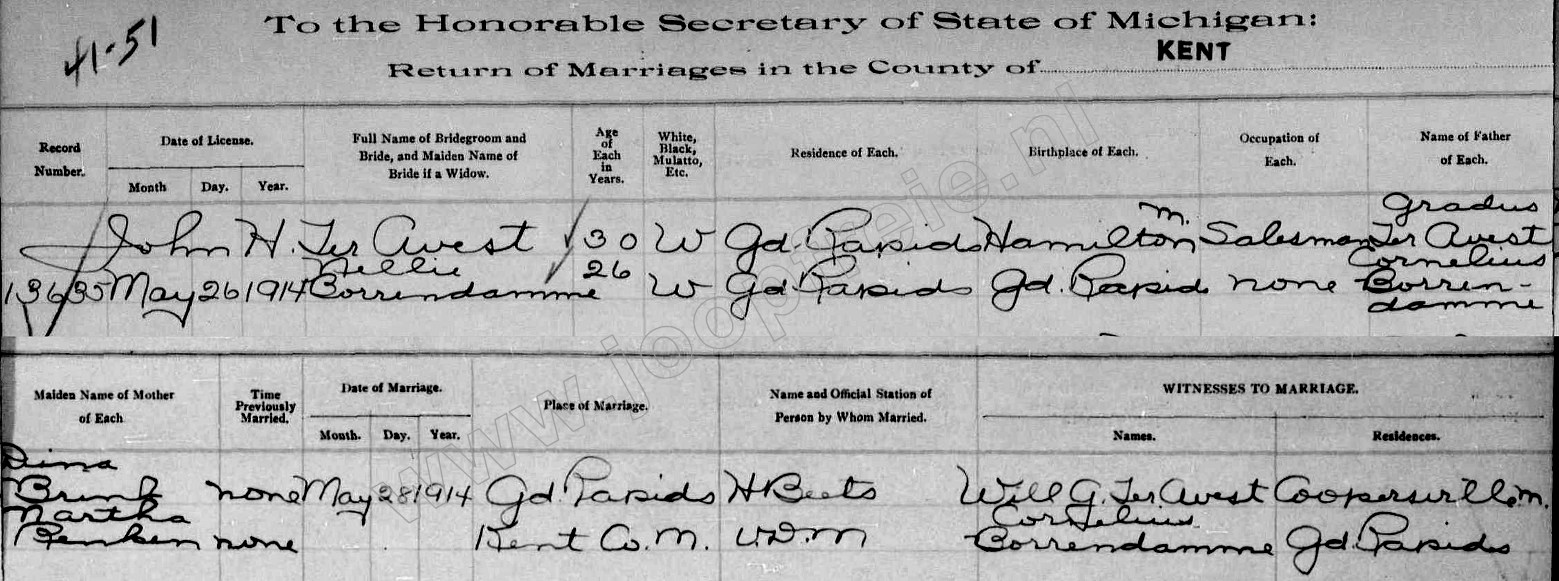 41-51
To the Honorable Secretary of State of Michigan:
Return of Marriages in the County of KENT
Record Number.
Date of License.
Month Day. Year.
Full Name of Bridegroom and Bride, and Maiden Name of Bride if a Widow.
Age of Each in Years.
White, Black, Mulatto, Etc.
Residence of Each.
Birthplace of Each.
Occupation of Each.
Name of Father of Each.
John H. Ter Avest 30 W Gd. Rapids Hamilton M. Salesman Gradus Ter Avest
13635 May 26 1914 Nellie Borrendamme 26 W Gd. Rapids Gd. Rapids none Cornelius Borren-
damme
Maiden Name of Mother of Each
Time Previously Married.
Date of Marriage.
Month. Day. Year.
Place of Marriage.
Name and Official Station of Person by Whom Married.
WITNESSES TO MARRIAGE.
Names. Residences.
Dina
Brink none May 28 1914 Gd. Rapids H Beets Will G. Ter Avest Coopersville M.
Martha Cornelius
Renken none Kent Co. M. V.D.M Borrendamme Gd. Rapids
www.joopteie.nl